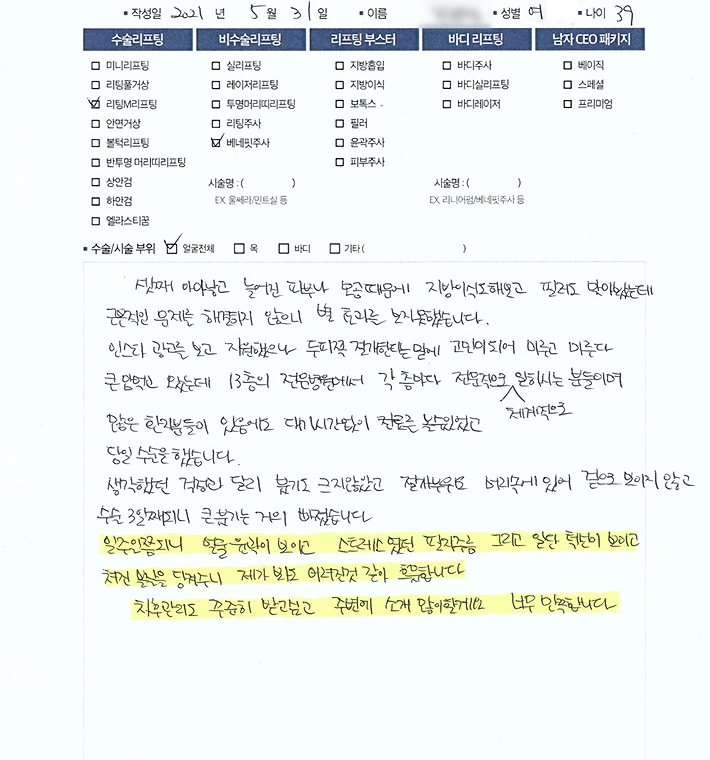 ▪ 작성일 2021 년 5 월 31 일 ▪ 이름 ▪ 성별 여 ▪ 나이 39
수술리프팅 비수술리프팅 리프팅 부스터 바디 리프팅 남자 CEO 패키지
미니리프팅 실리프팅 지방흡입 바디주사 베이직
리팅풀거상 레이저리프팅 지방이식 바디실리프팅 스페셜
리팅M리프팅 투명머리띠리프팅 보톡스 바디레이저 프리미엄
안면거상 리팅주사 필러
볼턱리프팅 베네핏주사 윤곽주사
반투명 머리띠리프팅 피부주사
상안검 시술명 : ( ) 시술명 : ( )
하안검 EX. 울쎄라/민트실 등 EX. 리니어펌/베네핏주사 등
엘라스티꿈
▪ 수술/시술 부위 얼굴전체 목 바디 기타 ( )
셋째 아이낳고 늘어진 피부나 모공때문에 지방이식도해보고 필러도 맞아봤는데
근본적인 문제를 해결하지 않으니 별 효과를 보지못했습니다.
인스타 광고를 보고 지원했으나 두피쪽 절개한다는말에 고민이되어 미루고 미루다
큰맘먹고 왔는데 13층의 전문병원에서 각 층마다 전문적으로 일하시는 분들이며
체계적으로
많은 환자분들이 있음에도 대기시간없이 진료를 볼수있었고
당일 수술을했습니다.
생각했던 걱정과 달리 붓기도 크지않았고 절개부위도 머리속에 있어 겉으로 보이지 않고
수술 3일째되니 큰 붓기는 거의 빠졌습니다
일주일쯤되니 얼굴윤곽이 보이고 스트레스였던 팔자주름 그리고 일단 턱선이 보이고
쳐진 볼살을 당겨주니 제가 봐도 어려진것 같아 흐뭇합니다
차후관리도 꾸준히 받고싶고 주변에 소개 많이할게요 너무 만족합니다